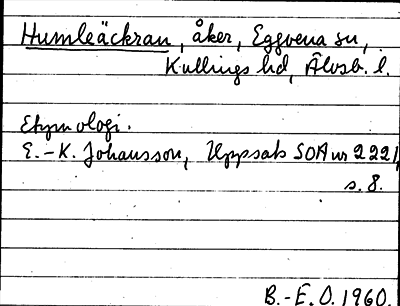 Humleäckran, åker, Eggvena sn,
Kullings hd, Älvsb. l.
Etymologi.
E.-K. Johansson, Uppsats SOA nr 2221,
s. 8.
B.-E. O. 1960.